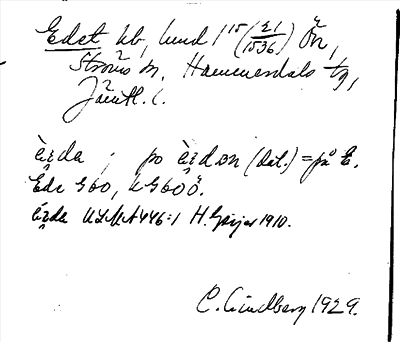 Edet hb, lund 1¹⁵ (21/1536) Ön,
Ströms sn, Hammerdals tg,
Jämtl. l.
èḍa ; po èḍɷn (dat.) = på E.
Ede 960, KG600.
éḍa ULMA 446:1 H. Geijer 1910.
C. Lindberg 1929.